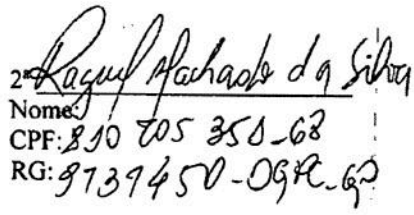 2ª Raquel Machado da Silva
Nome:
CPF: 810 705 351-68
RG: 3739450-DGPC-GO